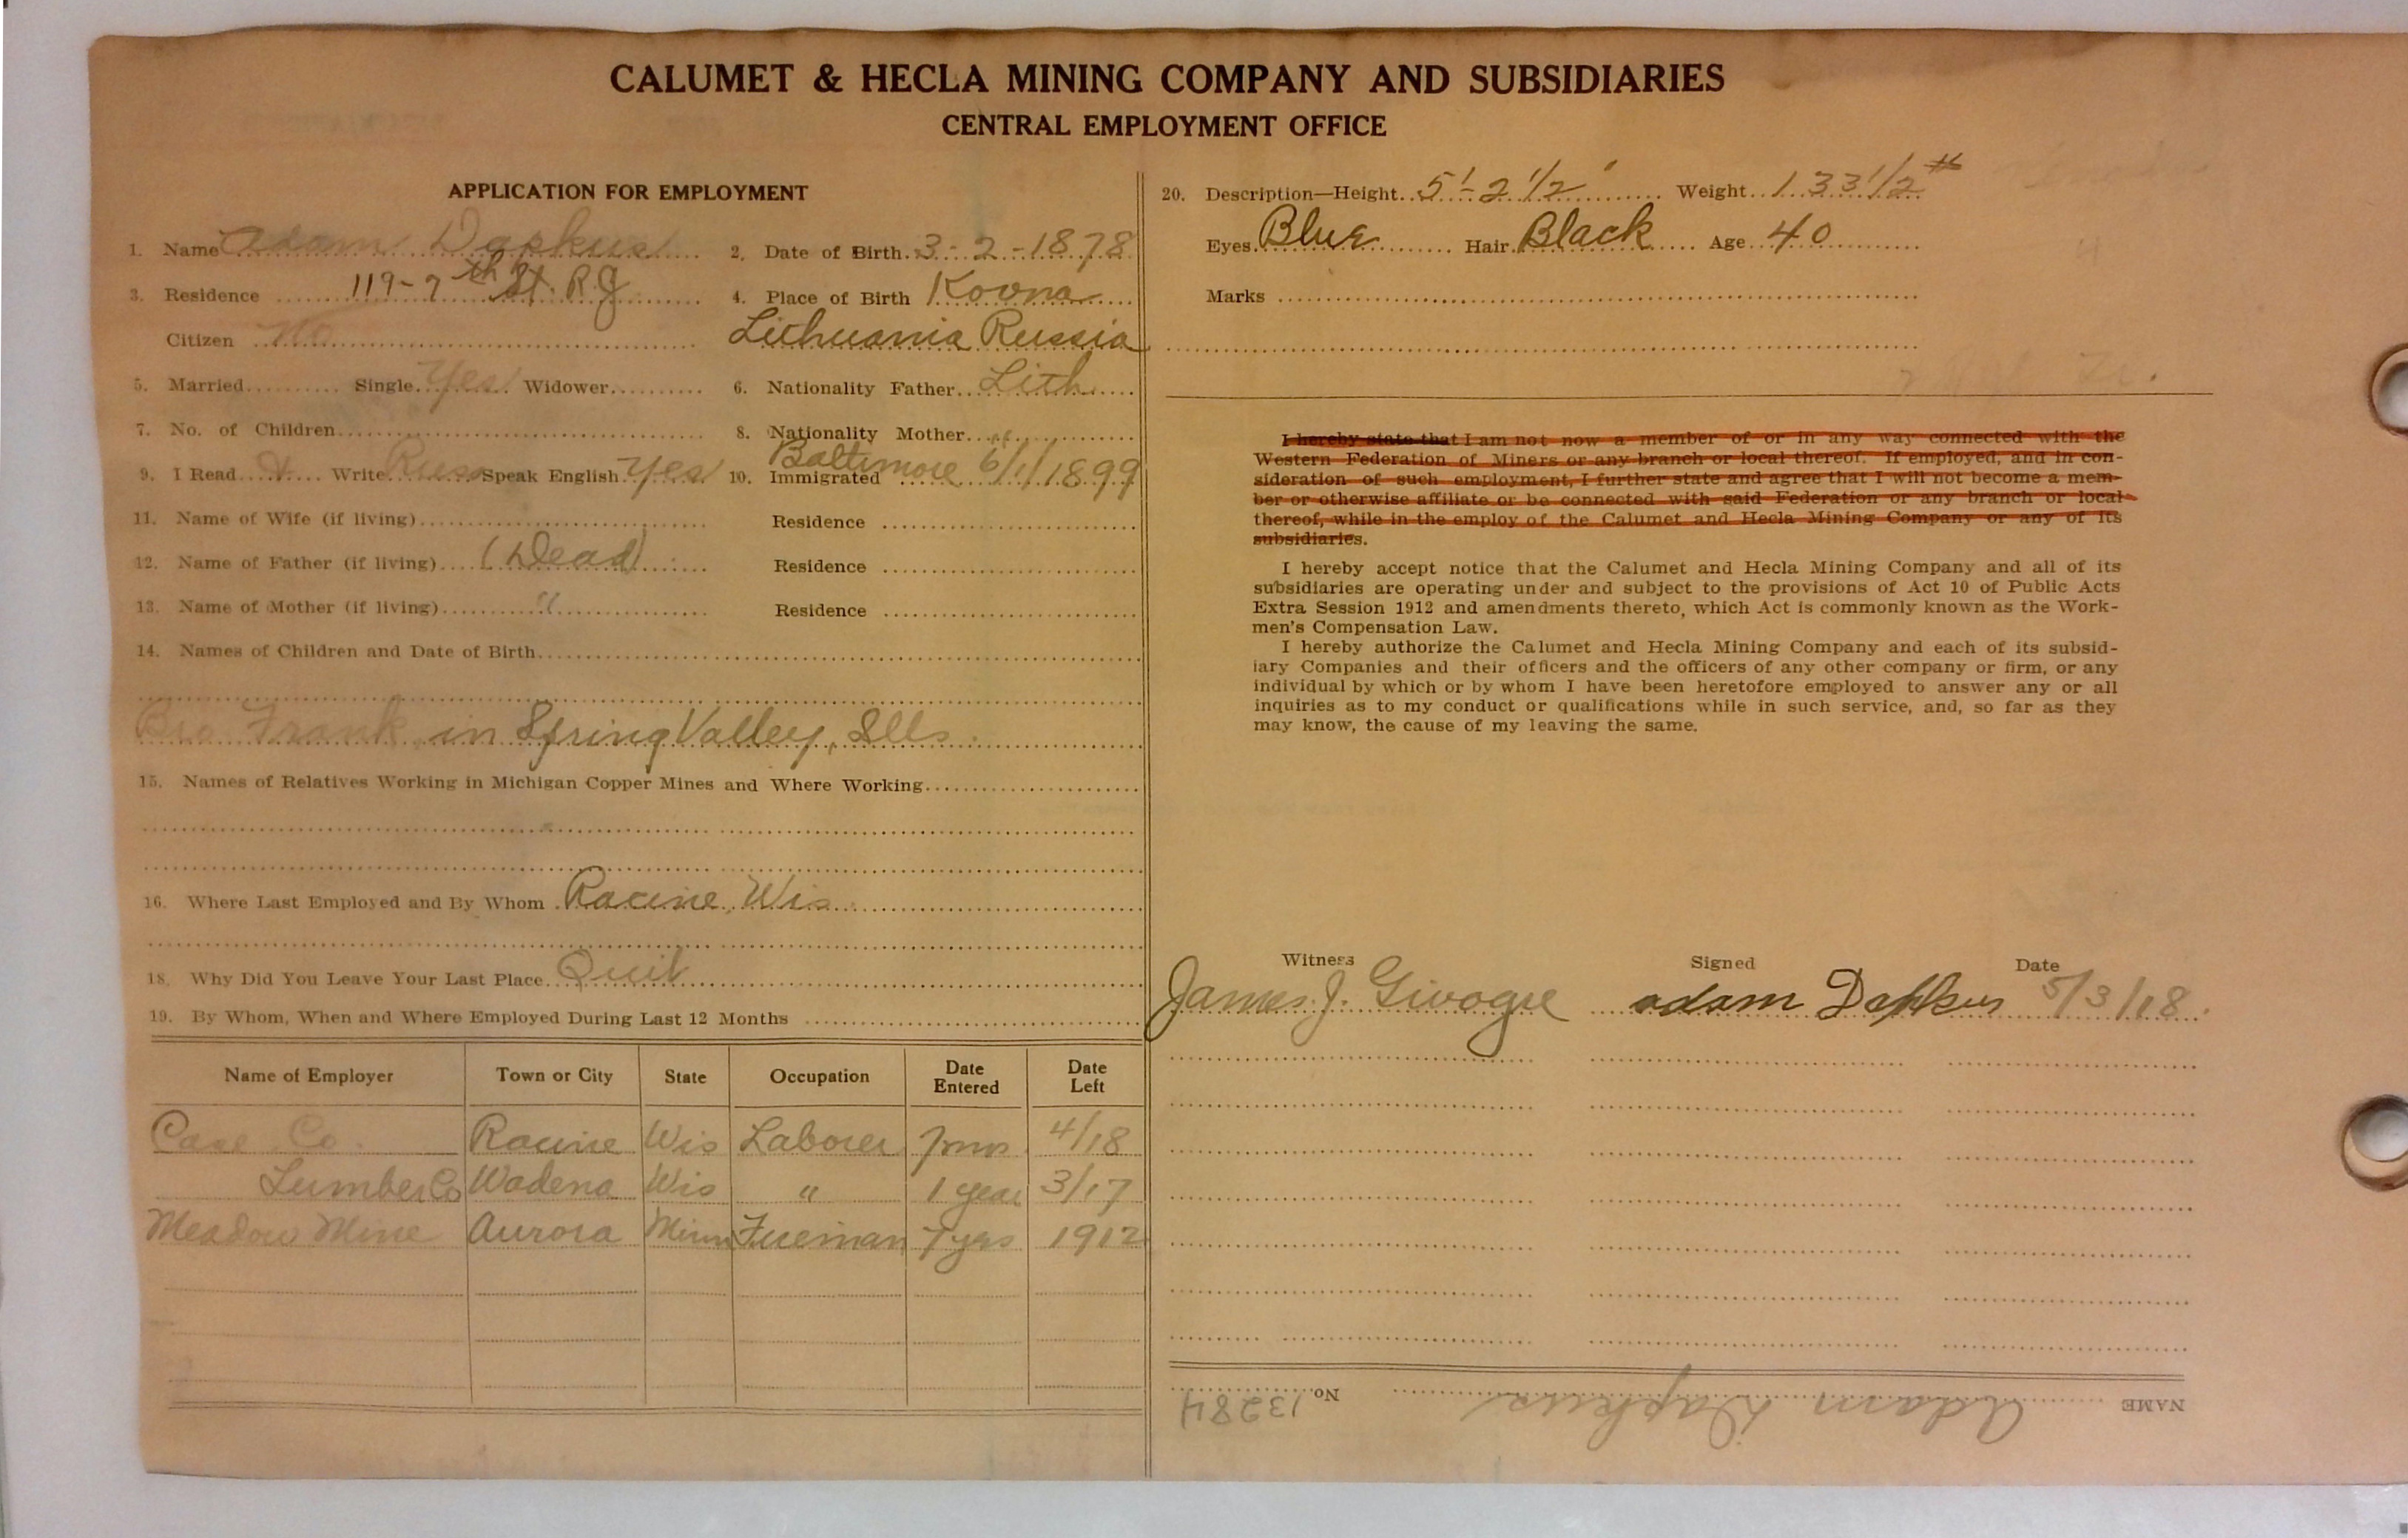 CALUMET & HECLA MINING COMPANY AND SUBSIDIARIES
CENTRAL EMPLOYMENT OFFICE
APPLICATION FOR EMPLOYMENT
1. Name Adam Dapkus 2. Date of Birth 3-2-1878
3. Residence 119-7th St. R.J. 4. Place of Birth Kovna
Citizen No Lithuania Russia
5. Married Single Yes Widower 6. Nationality Father Lith
7. No. of Children 8. Nationality Mother "
9. I Read Write Russ Speak English Yes 10. Immigrated Baltimore 6/1/1899
11. Name of Wife (if living) Residence
12. Name of Father (if living) (Dead) Residence
13. Name of Mother (if living) " Residence
14. Names of Children and Date of Birth
Bro Frank in Spring Valley, Ills.
15. Names of Relatives Working in Michigan Copper Mines and Where Working
16. Where Last Employed and By Whom Racine, Wis.
18. Why Did You Leave Your Last Place Quit
19. By Whom, When and Where Employed During Last 12 Months
Name of Employer Town or City State Occupation Date Entered Date Left
Case Co. Racine Wis Laborer 7 mos. 4/18
Lumber Co Wadena Wis " 1 year 3/17
Meadow Mine Aurora Minn Fireman 7 yrs 1912
20. Description—Height 5'-2 1/2" Weight 133 1/2 #
Eyes Blue Hair Black Age 40
Marks
I hereby state that I am not now a member of or in any way connected with the
Western Federation of Miners or any branch or local thereof. If employed, and in con-
sideration of such employment, I further state and agree that I will not become a mem-
ber or otherwise affiliate or be connected with said Federation or any branch or local
thereof, while in the employ of the Calumet and Hecla Mining Company or any of its
subsidiaries.
I hereby accept notice that the Calumet and Hecla Mining Company and all of its
subsidiaries are operating under and subject to the provisions of Act 10 of Public Acts
Extra Session 1912 and amendments thereto, which Act is commonly known as the Work-
men's Compensation Law.
I hereby authorize the Calumet and Hecla Mining Company and each of its subsid-
iary Companies and their officers and the officers of any other company or firm, or any
individual by which or by whom I have been heretofore employed to answer any or all
inquiries as to my conduct or qualifications while in such service, and, so far as they
may know, the cause of my leaving the same.
Witness Signed Date
James J. Givogre Adam Dapkus 5/3/18
NAME Adam Dapkus No. 13284